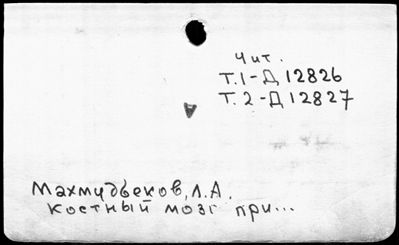 Чит.
Т.1-Д 12826
Т.2-Д 12827
Махмудбеков, Л.А.
костный мозг при...